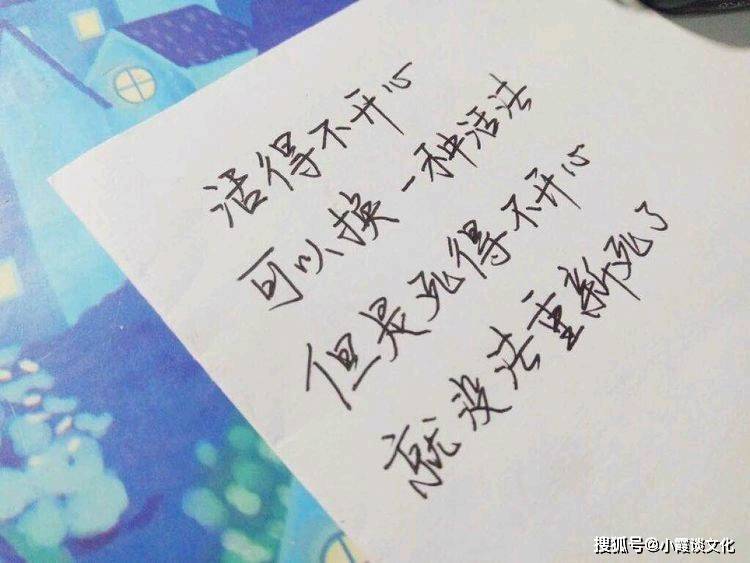 活得不开心
可以换一种活法
但是死得不开心
就没法重新死了
搜狐号@小霞谈文化